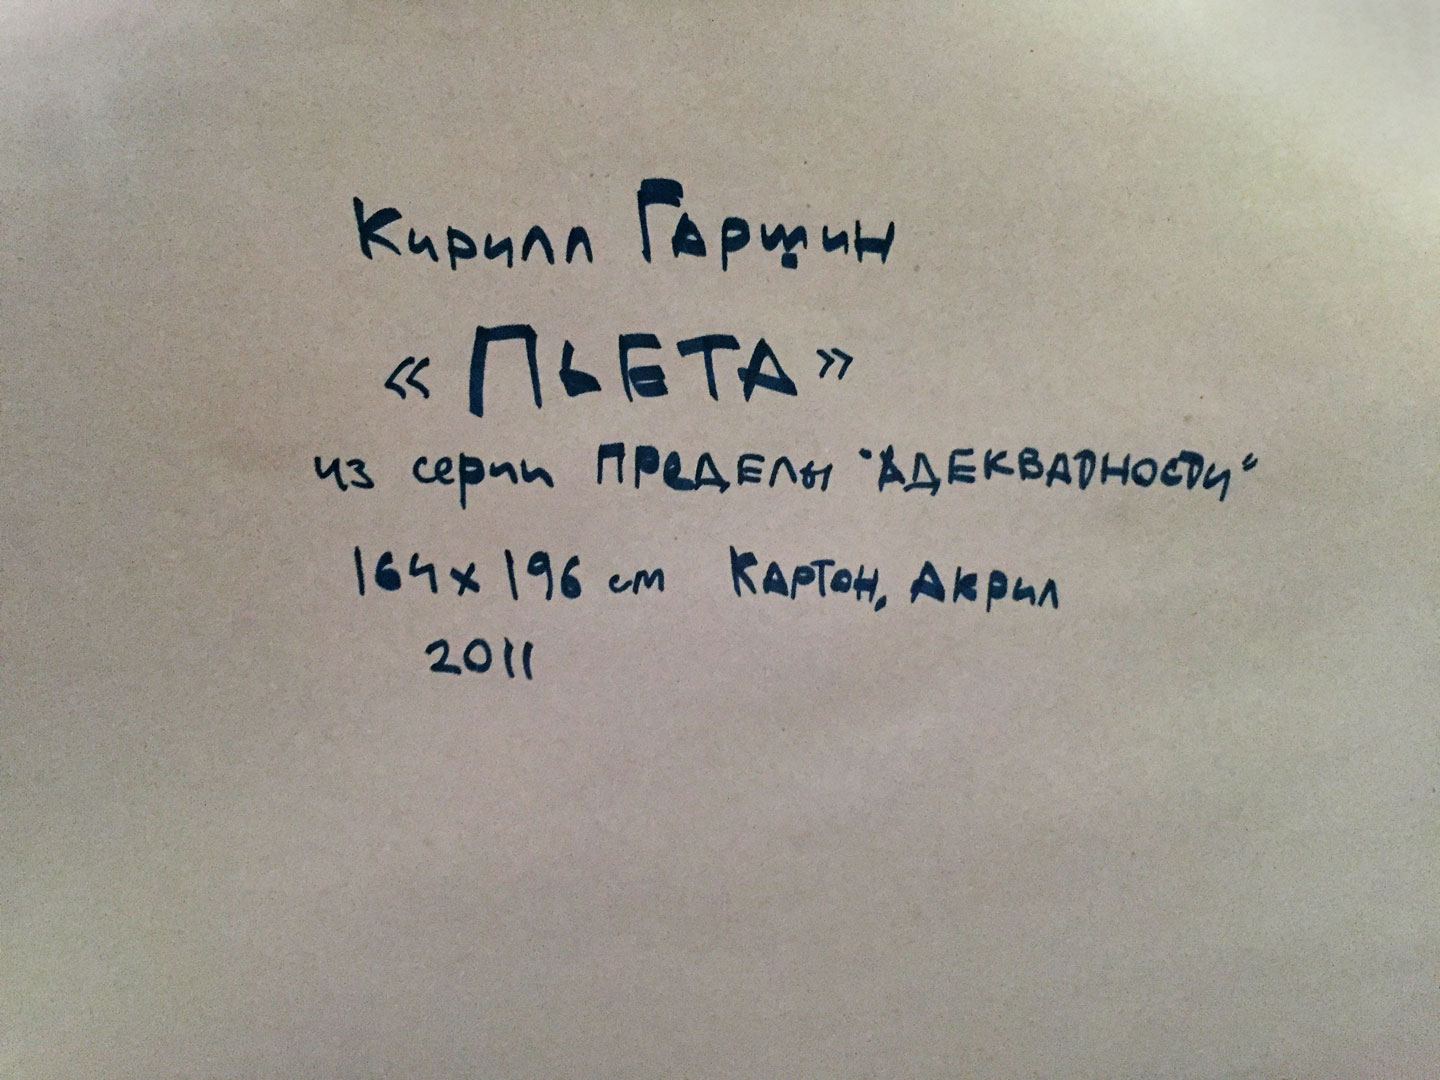 Кирилл Гаршин
«ПЬЕТА»
из серии ПРЕДЕЛЫ "АДЕКВАТНОСТИ"
164х196 см Картон, Акрил
2011